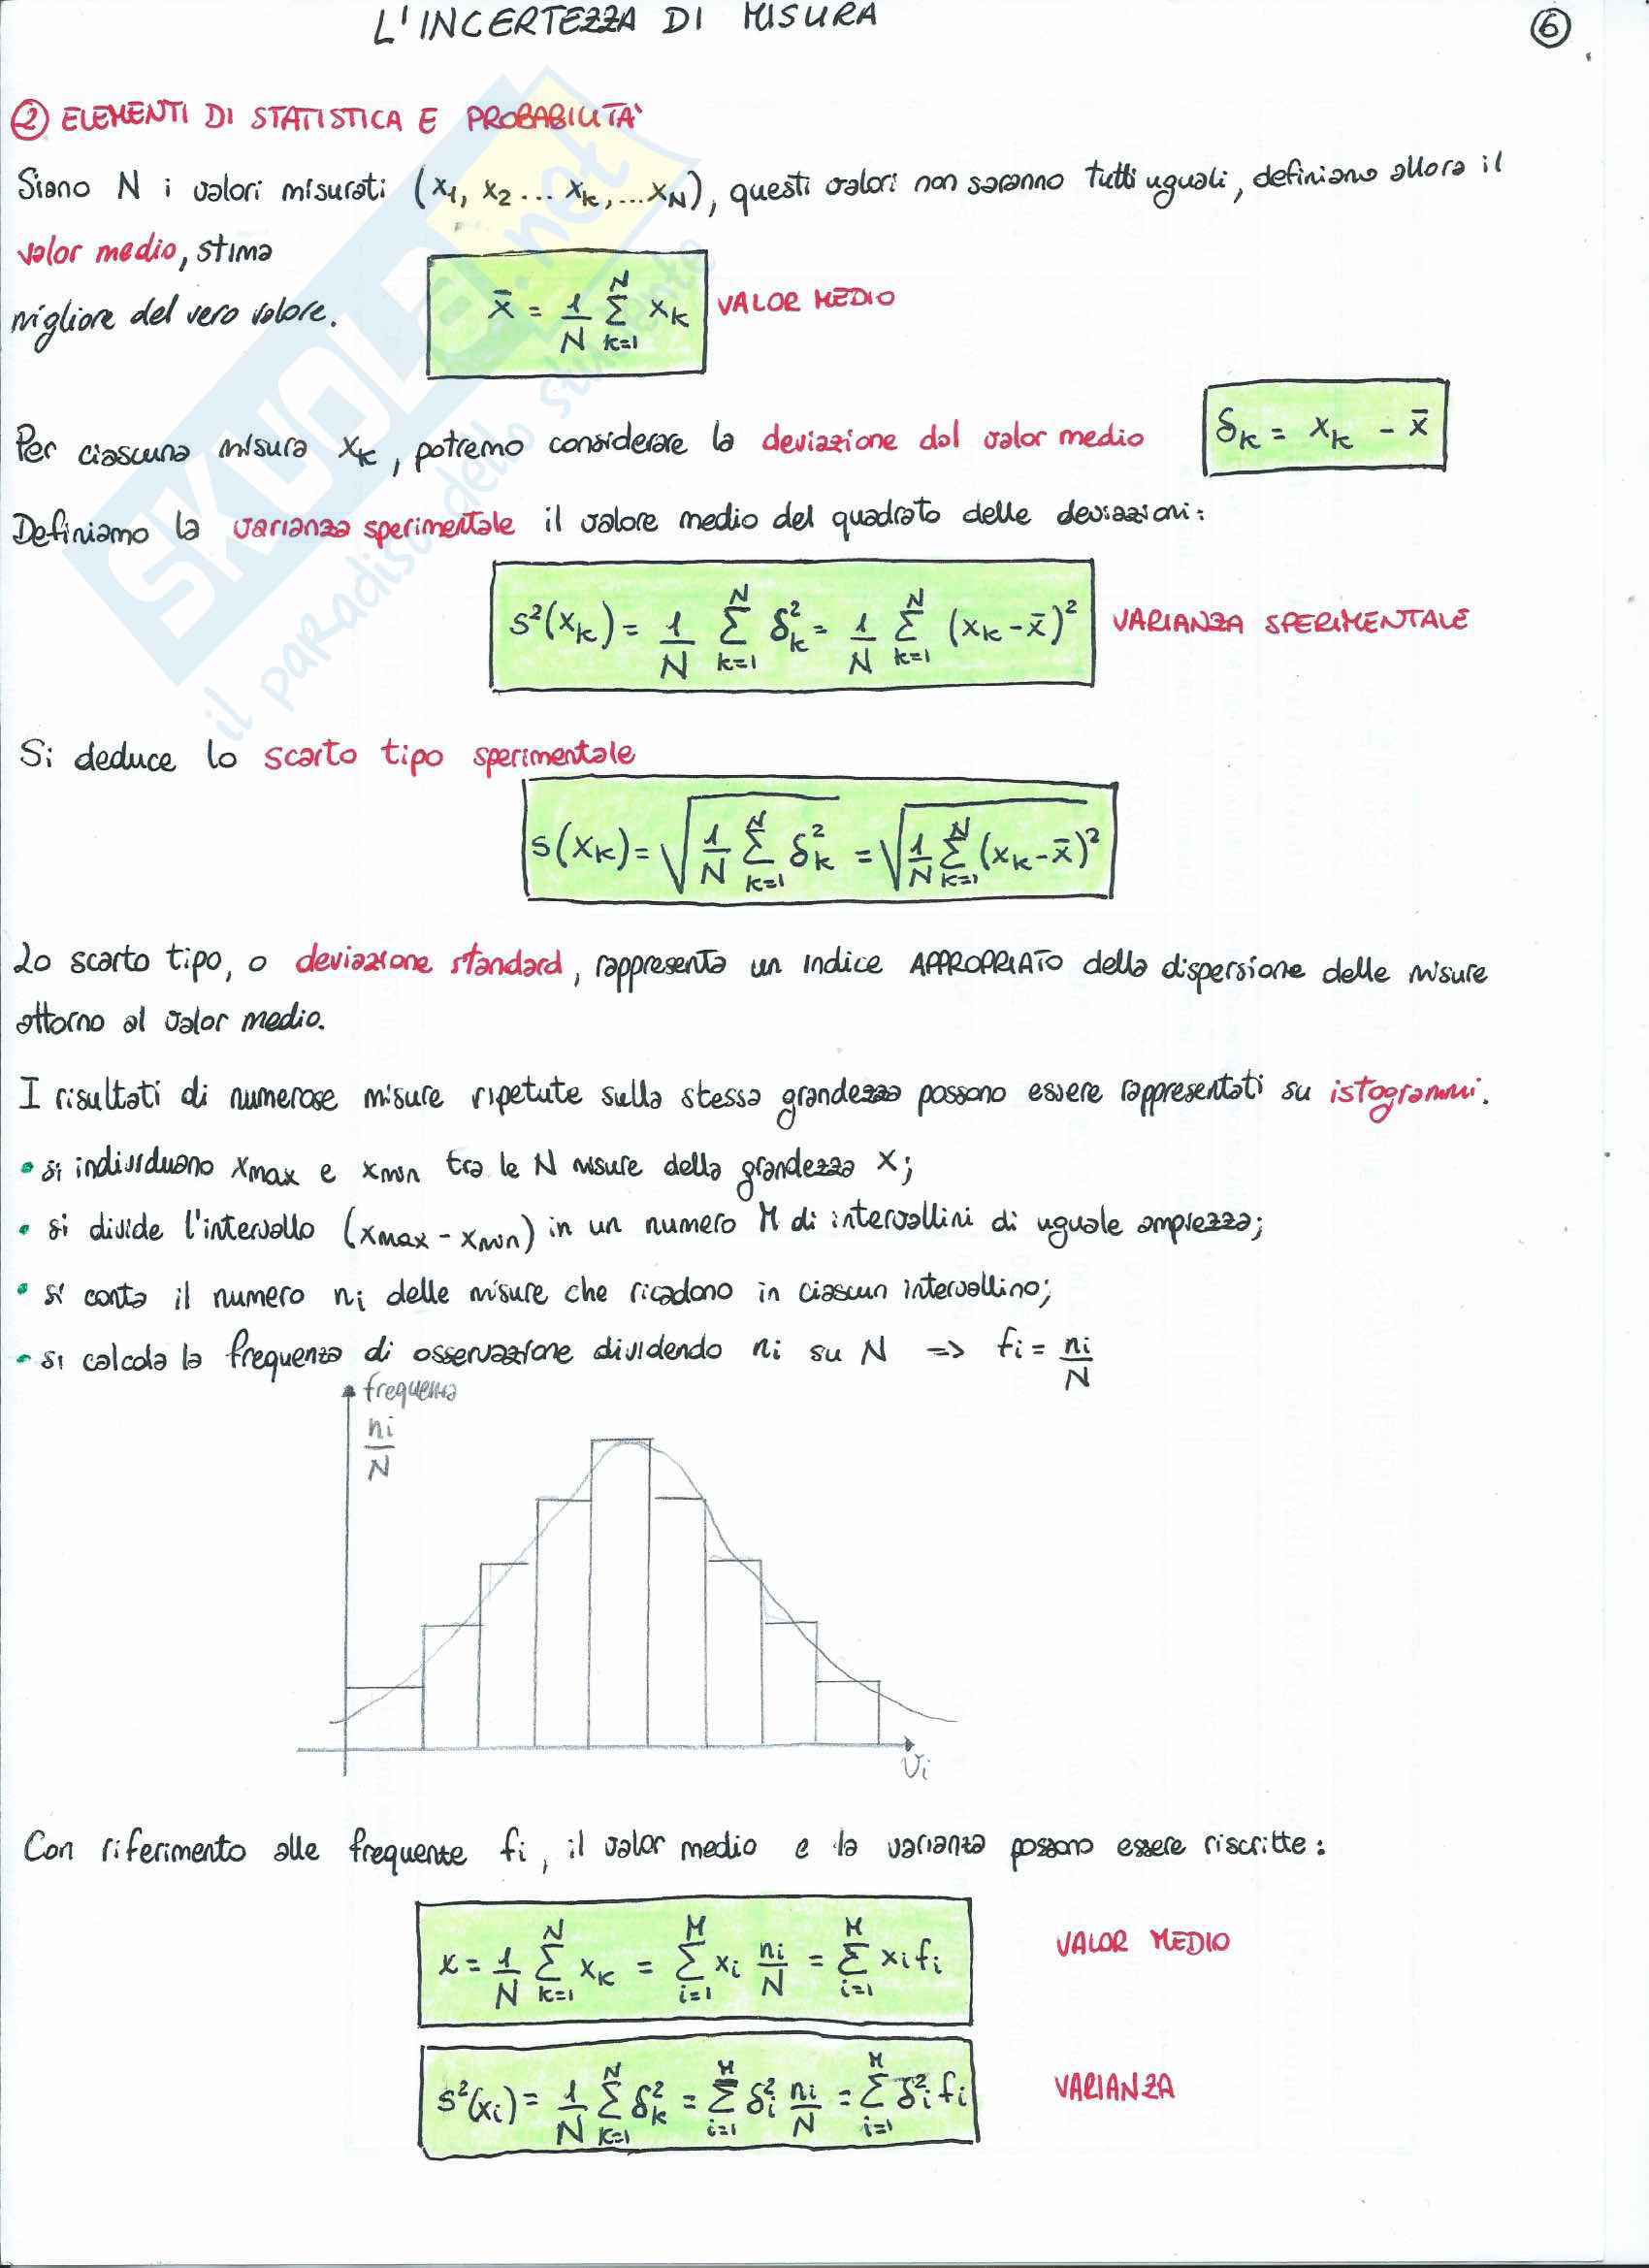 L'INCERTEZZA DI MISURA
6
2 ELEMENTI DI STATISTICA E PROBABILITA'
Siano N i valori misurati (x1, x2 ... xk, ... xN), questi valori non saranno tutti uguali, definiamo allora il
valor medio, stima
migliore del vero valore.
x̄ = 1/N Σ_{k=1}^{N} xk VALOR MEDIO
Per ciascuna misura xk, potremo considerare la deviazione dal valor medio δk = xk - x̄
Definiamo la varianza sperimentale il valore medio del quadrato delle deviazioni:
s²(xk) = 1/N Σ_{k=1}^{N} δk² = 1/N Σ_{k=1}^{N} (xk - x̄)² VARIANZA SPERIMENTALE
Si deduce lo scarto tipo sperimentale
s(xk) = √(1/N Σ_{k=1}^{N} δk²) = √(1/N Σ_{k=1}^{N} (xk - x̄)²)
Lo scarto tipo, o deviazione standard, rappresenta un indice APPROPRIATO della dispersione delle misure
attorno al valor medio.
I risultati di numerose misure ripetute sulla stessa grandezza possono essere rappresentati su istogrammi.
• si individuano xmax e xmin tra le N misure della grandezza X;
• si divide l'intervallo (xmax - xmin) in un numero M di intervallini di uguale ampiezza;
• si conta il numero ni delle misure che ricadono in ciascun intervallino;
• si calcola la frequenza di osservazione dividendo ni su N => fi = ni/N
frequenza
ni/N
Vi
Con riferimento alle frequente fi, il valor medio e la varianza possono essere riscritte:
x = 1/N Σ_{k=1}^{N} xk = Σ_{i=1}^{M} xi ni/N = Σ_{i=1}^{M} xi fi VALOR MEDIO
s²(xi) = 1/N Σ_{k=1}^{N} δk² = Σ_{i=1}^{M} δi² ni/N = Σ_{i=1}^{M} δi² fi VARIANZA
SKUOLa.net
il paradiso dello studente